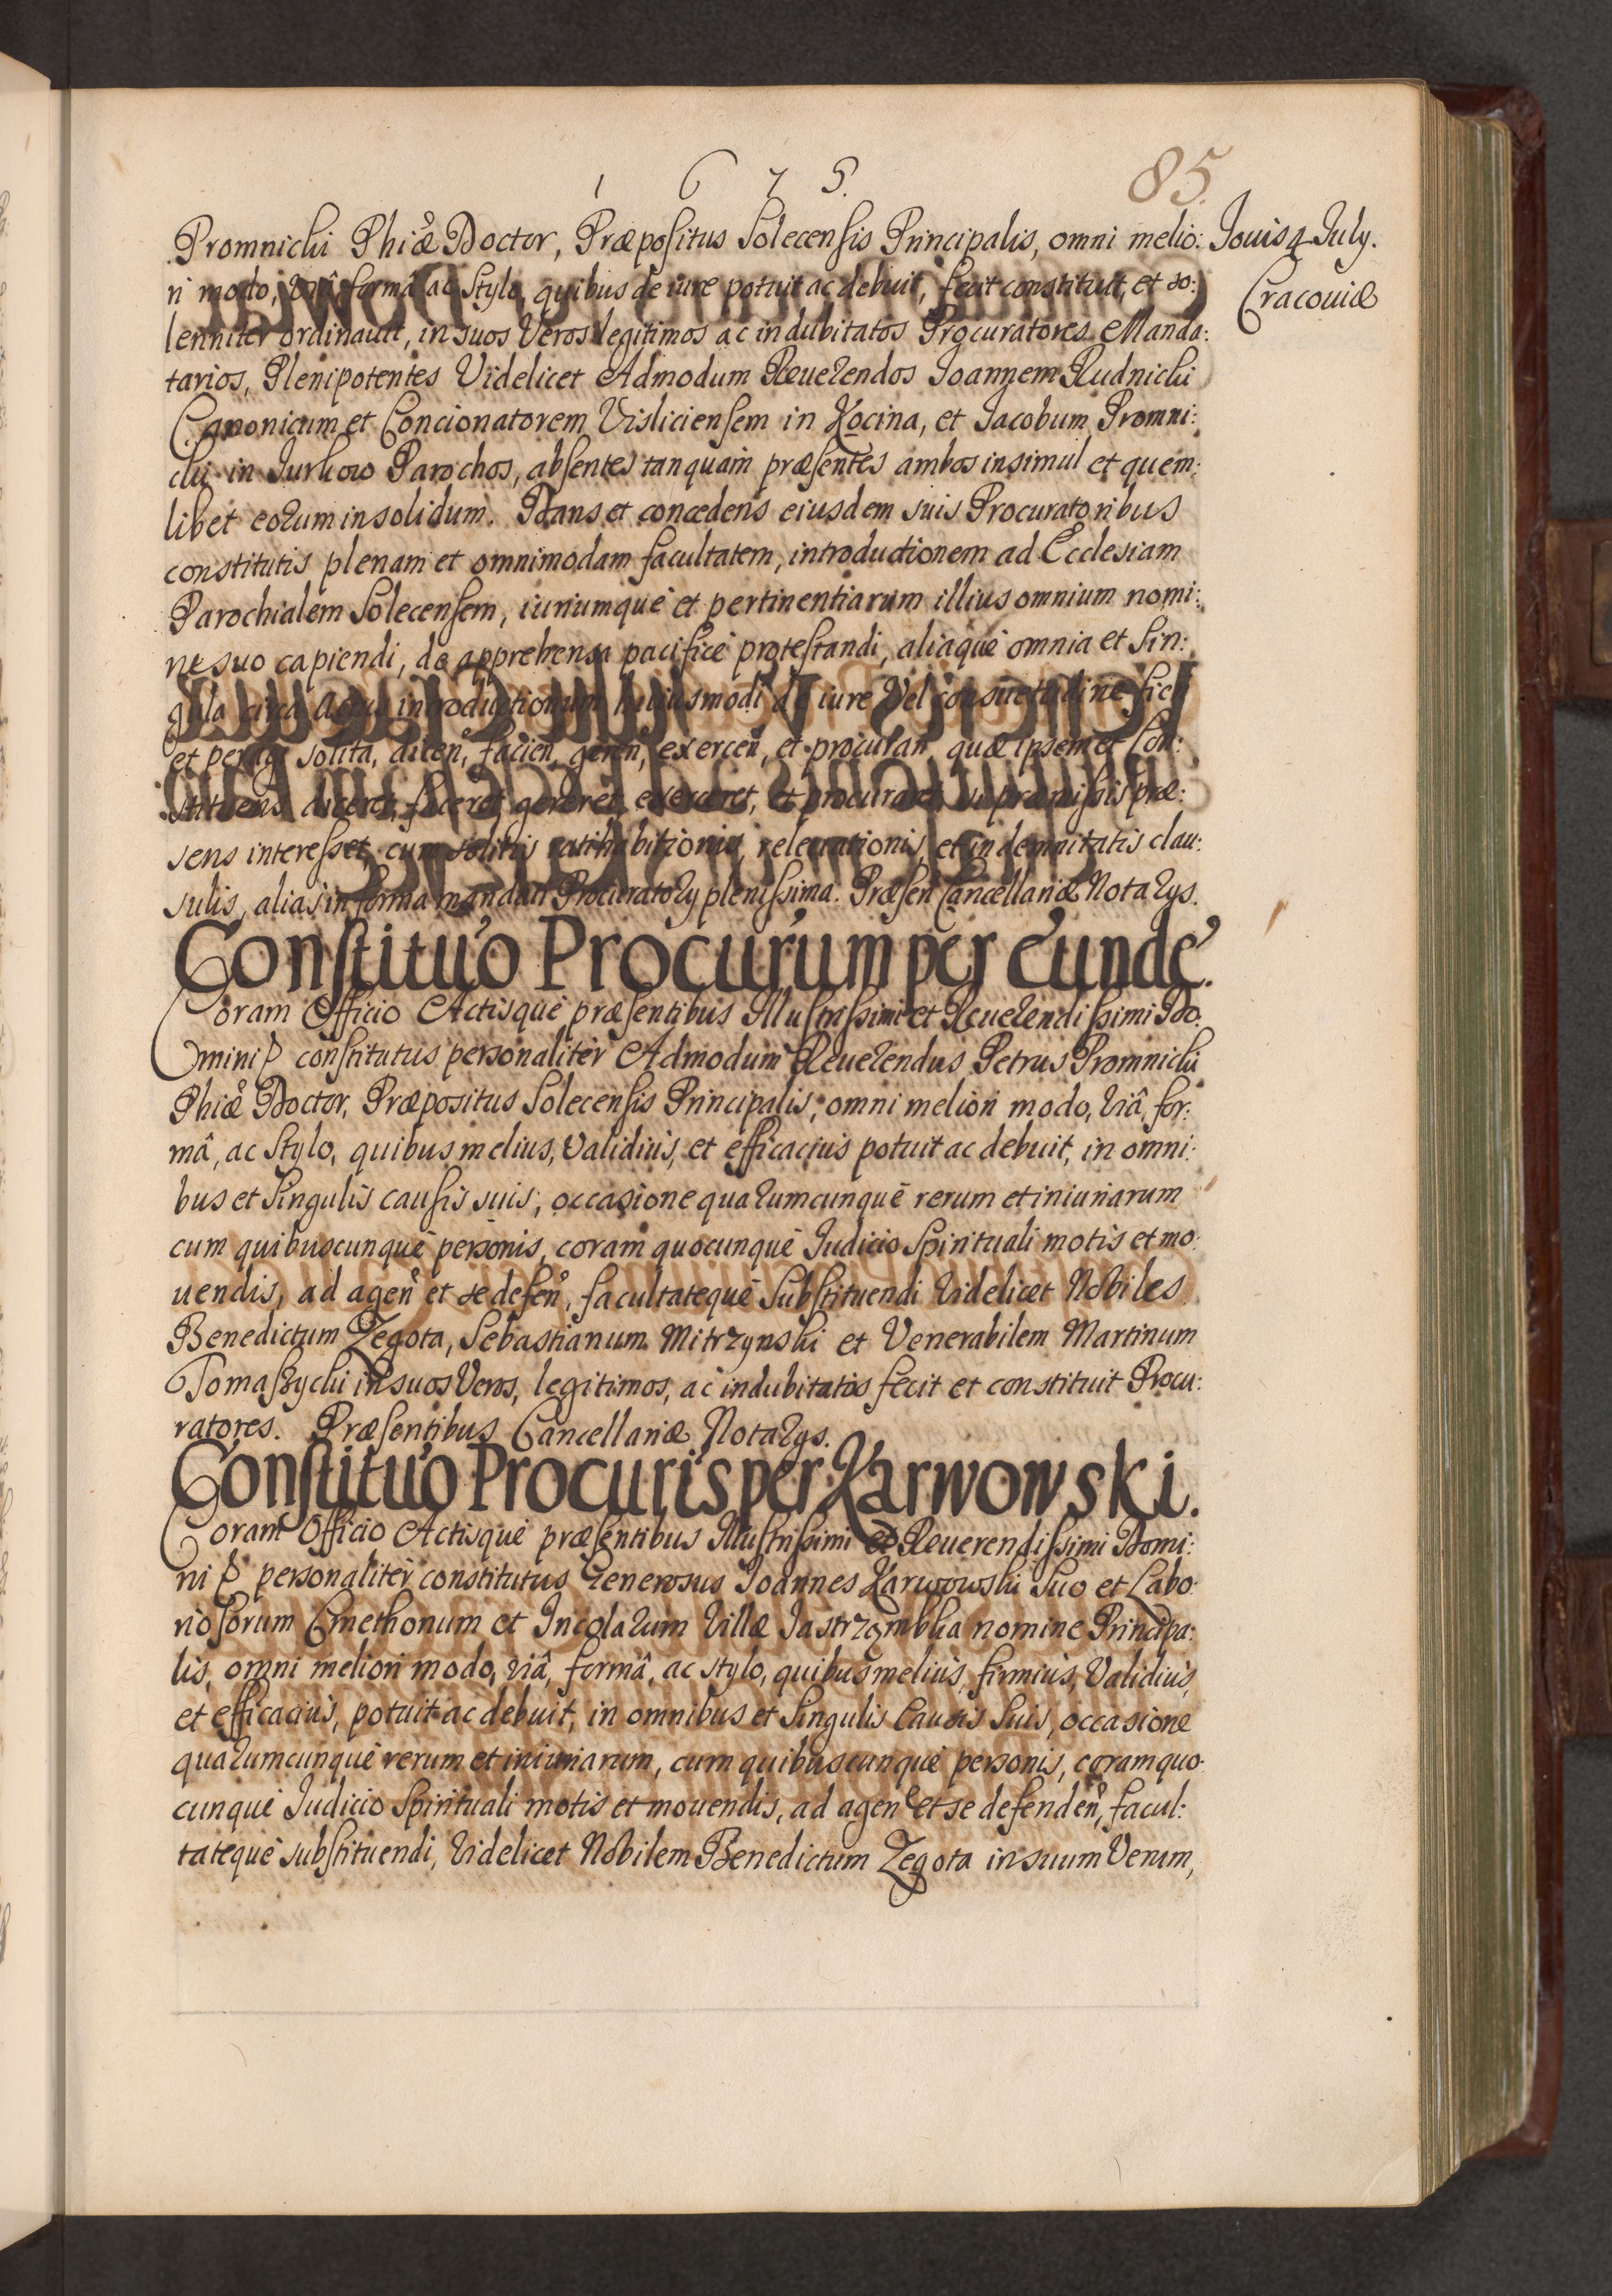 1 6 7 5.
85.
Promnicki Phiæ Doctor, Præpositus Solecensis Principalis, omni melio:
Jouis 4 July.
Cracouiæ
ri modo, viâ formâ ac Stylo, quibus de iure potuit ac debuit, fecit constituit, et so:
lenniter ordinauit, in suos Veros legitimos ac indubitatos Procuratores Manda:
tarios, Plenipotentes Videlicet Admodum Reuerendos Joannem Rudnicki
Canonicum et Concionatorem Visliciensem in Kocina, et Jacobum Promni:
cki in Jurkow Parochos, absentes tanquam præsentes ambos insimul et quem:
libet eorum in solidum. Dans et concedens eiusdem suis Procuratoribus
constitutis plenam et omnimodam facultatem, introductionem ad Ecclesiam
Parochialem Solecensem, iuriumque et pertinentiarum illius omnium nomi:
ne suo capiendi, de apprehensa pacifice protestandi, aliaque omnia et Sin:
gula circa Actus introductionum huiusmodi de iure Vel consuetudine fieri
et peragi solita, dicen, facien, geren, exercen, et procuran, quæ ipsemet Con:
stituens diceret, faceret, gereret, exerceret, et procuraret, si præmissis præ:
sens interesset, cum solitis ratihabitionis, releuationis, et indemnitatis clau:
sulis, alias in forma mandati Procuratory plenissima. Præsen Cancellariæ Notarys.
Constituo Procurum per eunde.
Coram Officio Actisque præsentibus Illustrissimi et Reuerendissimi Do:
mini P constitutus personaliter Admodum Reuerendus Petrus Promnicki
Phiæ Doctor, Præpositus Solecensis Principalis, omni meliori modo, viâ, for:
mâ, ac Stylo, quibus melius, Validius, et efficacius potuit ac debuit, in omni:
bus et Singulis causis suis, occasione quarumcunque rerum et iniuriarum
cum quibuscunque personis, coram quocunque Judicio Spirituali motis et mo:
uendis, ad agen et se defen, facultateque Substituendi Videlicet Nobiles
Benedictum Zegota, Sebastianum Mitrzynski et Venerabilem Martinum
Tomaszycki in suos Veros, legitimos, ac indubitatos fecit et constituit Procu:
ratores. Præsentibus Cancellariæ Notarys.
Constituo Procuris per Karwowski.
Coram Officio Actisque præsentibus Illustrissimi et Reuerendissimi Domi:
ni P personaliter constitutus Generosus Joannes Karwowski Suo et Labo:
riosorum Cmethonum et Incolarum Villæ Jastrzombka nomine Principa:
lis, omni meliori modo, viâ, formâ, ac stylo, quibus melius, firmius, Validius,
et efficacius, potuit ac debuit, in omnibus et Singulis Causis Suis, occasione
quarumcunque rerum et iniuriarum, cum quibuscunque personis, coram quo:
cunque Judicio Spirituali motis et mouendis, ad agen et se defenden, facul:
tateque substituendi, Videlicet Nobilem Benedictum Zegota in suum Verum,